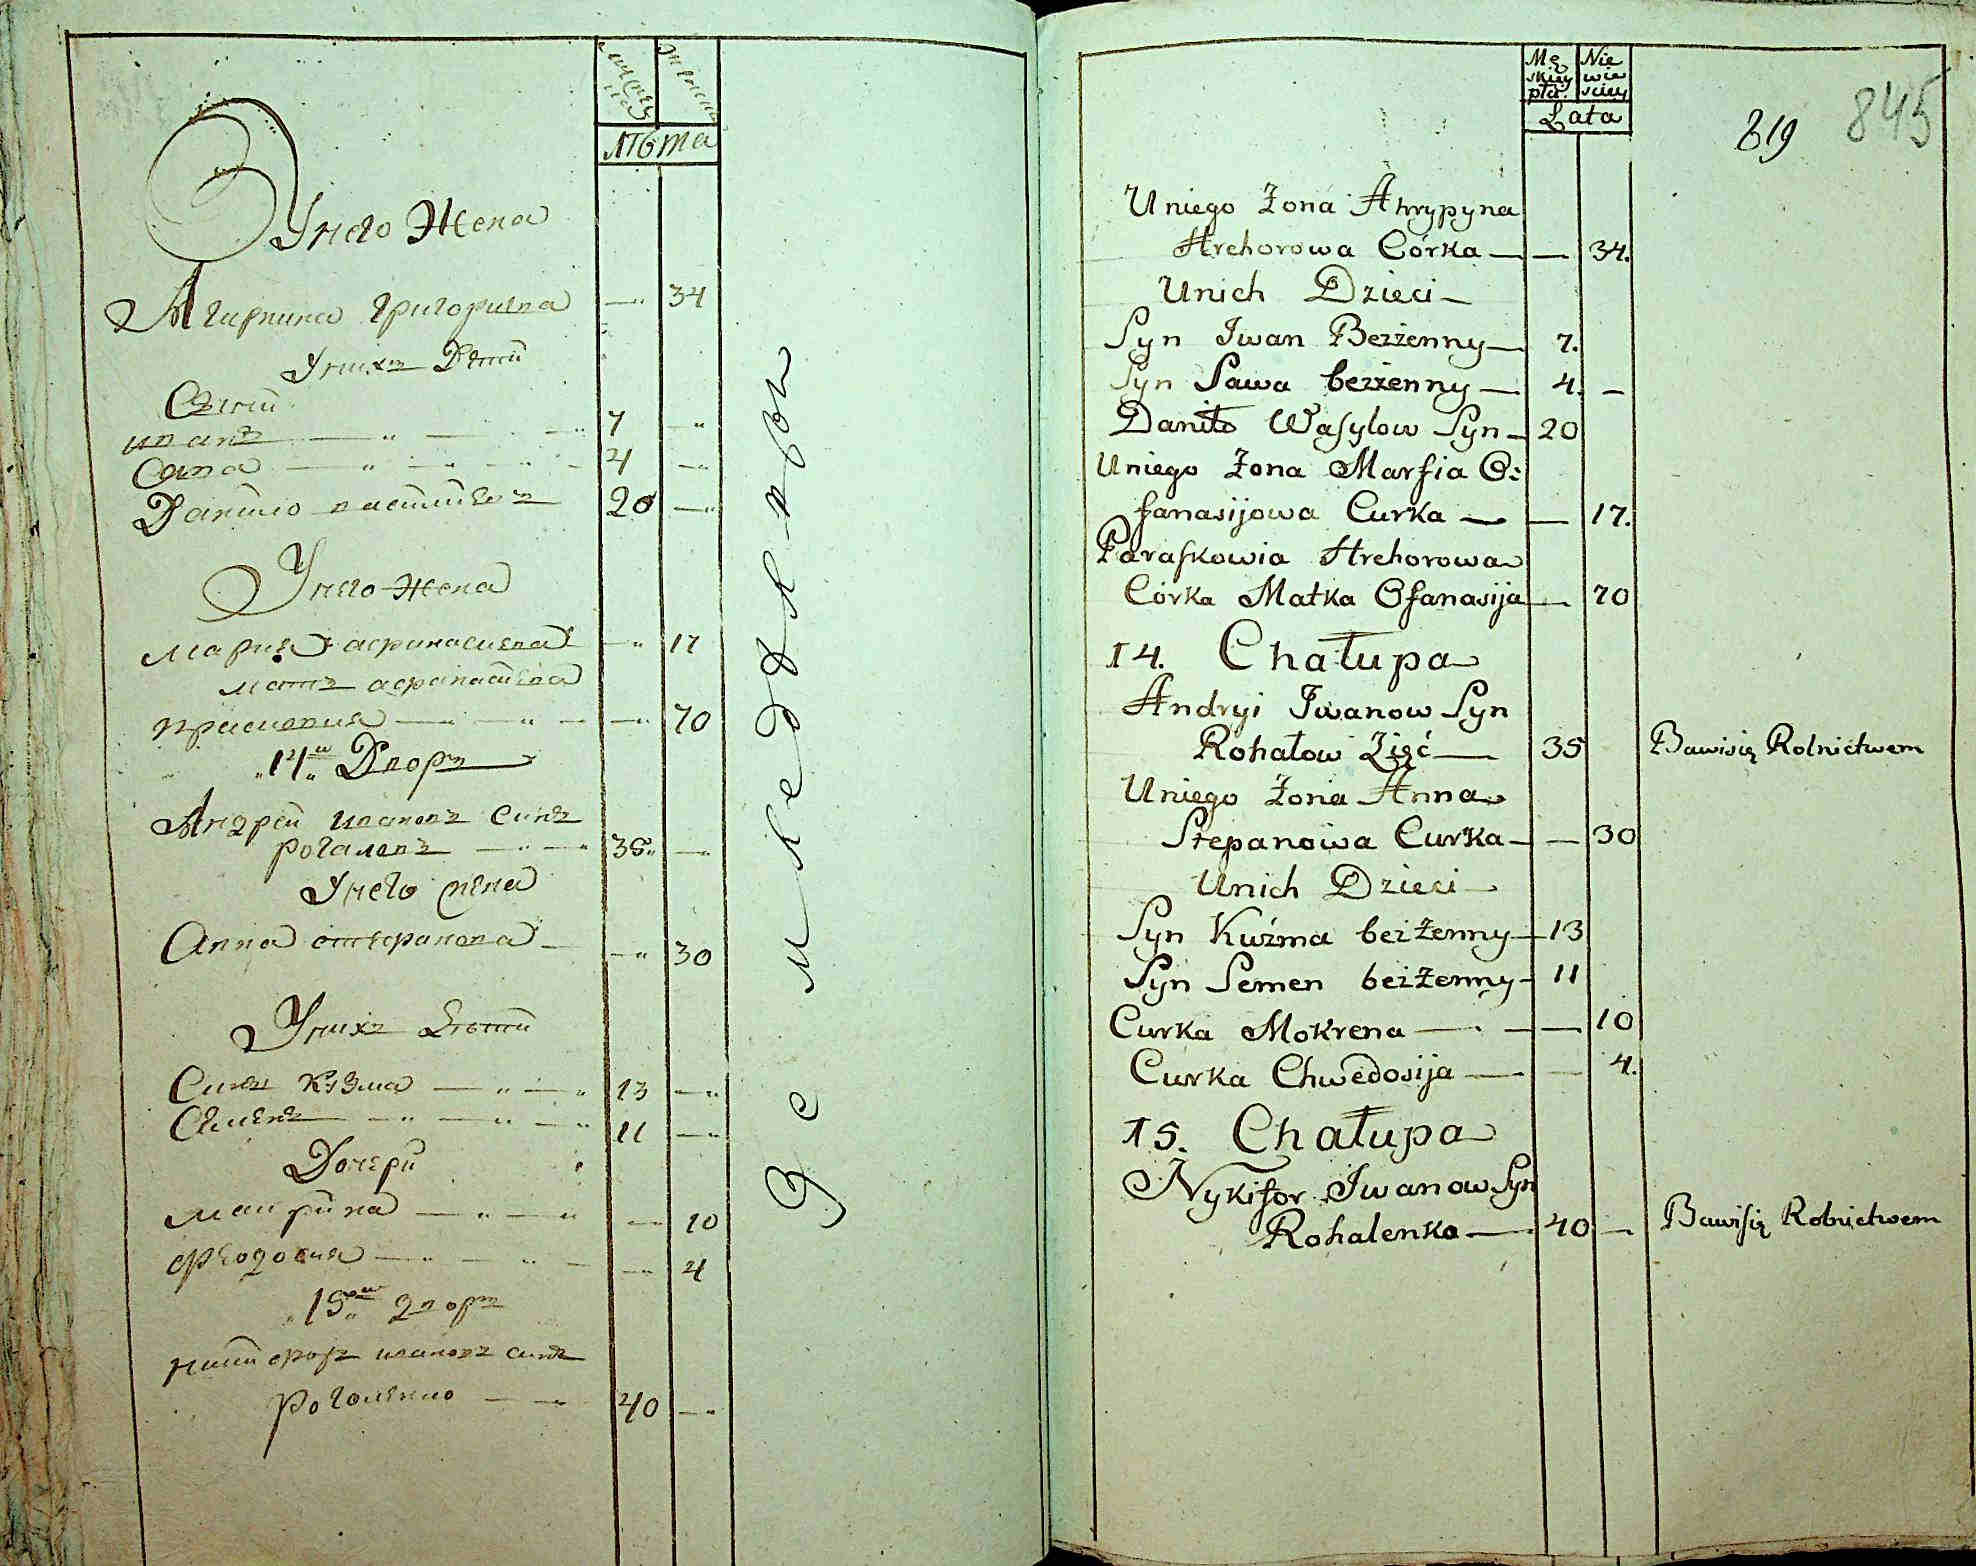 мужеска
женска
лѣта
У него Жена
Агирпина Григориева 34
У нихъ Дети
Сыни
иванъ 7
Сава 4
Данило васильевъ 20
У него Жена
Мария афанасиева 17
мать афанасиева
прасковия 70
14й Дворъ
Андрей ивановъ синъ
рогаловъ 35
У него жена
Анна степанова 30
У нихъ дѣти
Сини Кузма 13
Семенъ 11
Дочери
Маврина 10
феодосия 4
15й дворъ
никифоръ ивановъ синъ
роголенко 40
Męskiey płci.
Niewiesciey
Lata
819
845
Uniego Żona Ahrypyna
Hrehorowa Córka — — 34.
Unich Dzieci —
Syn Iwan Bezżenny — 7.
Syn Sawa bezżenny — 4. —
Daniło Wasylow Syn — 20
Uniego Żona Marfia O:
fanasijowa Curka — — 17.
Paraskowia Hrehorowa
Córka Matka Ofanasija — 70
14. Chałupa
Andryi Iwanow Syn
Rohałow Zięć — 35 Bawisię Rolnictwem
Uniego Żona Anna
Stepanowa Curka — — 30
Unich Dzieci —
Syn Kuźma bezżenny — 13
Syn Semen bezżenny — 11
Curka Mokrena — — — 10
Curka Chwedosija — — 4.
15. Chałupa
Nykifor Iwanow Syn
Rohalenko — 40 — Bawisię Rolnictwem